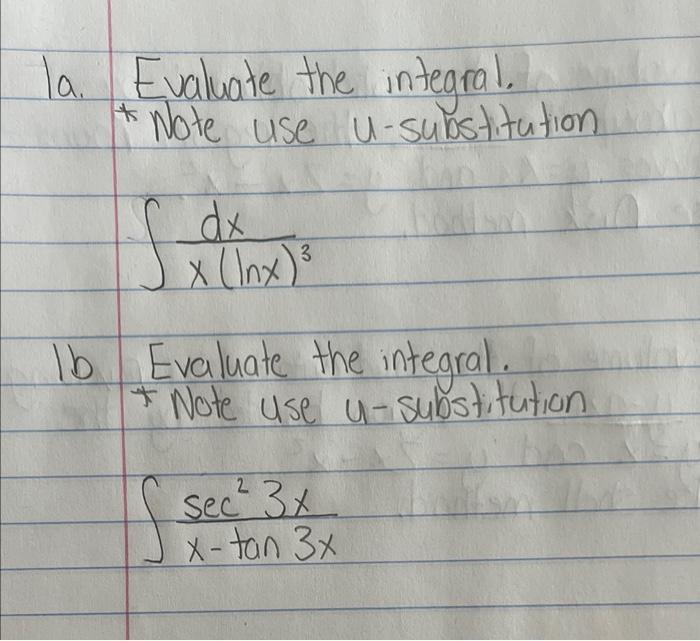 1a. Evaluate the integral.
* Note use u-substitution
∫ dx / x (lnx)³
1b Evaluate the integral.
* Note use u-substitution
∫ sec² 3x / x - tan 3x